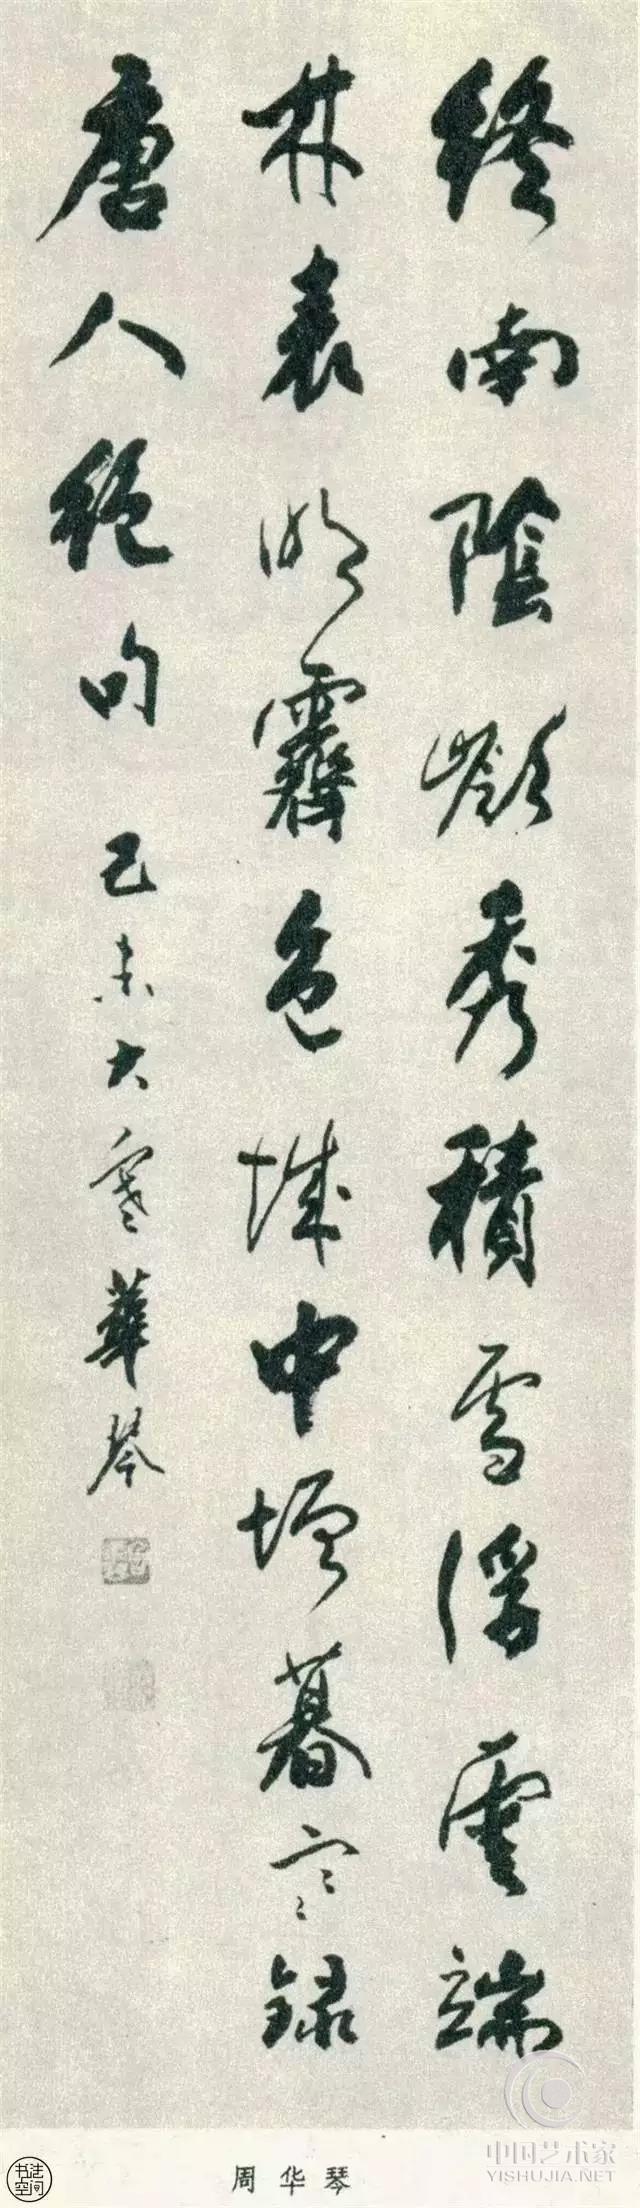 終南陰嶺秀積雪浮雲端
林表明霽色城中增暮寒録
唐人絕句 己未大寒華琴
周华琴
书法空间
中国艺术家
YISHUJIA.NET